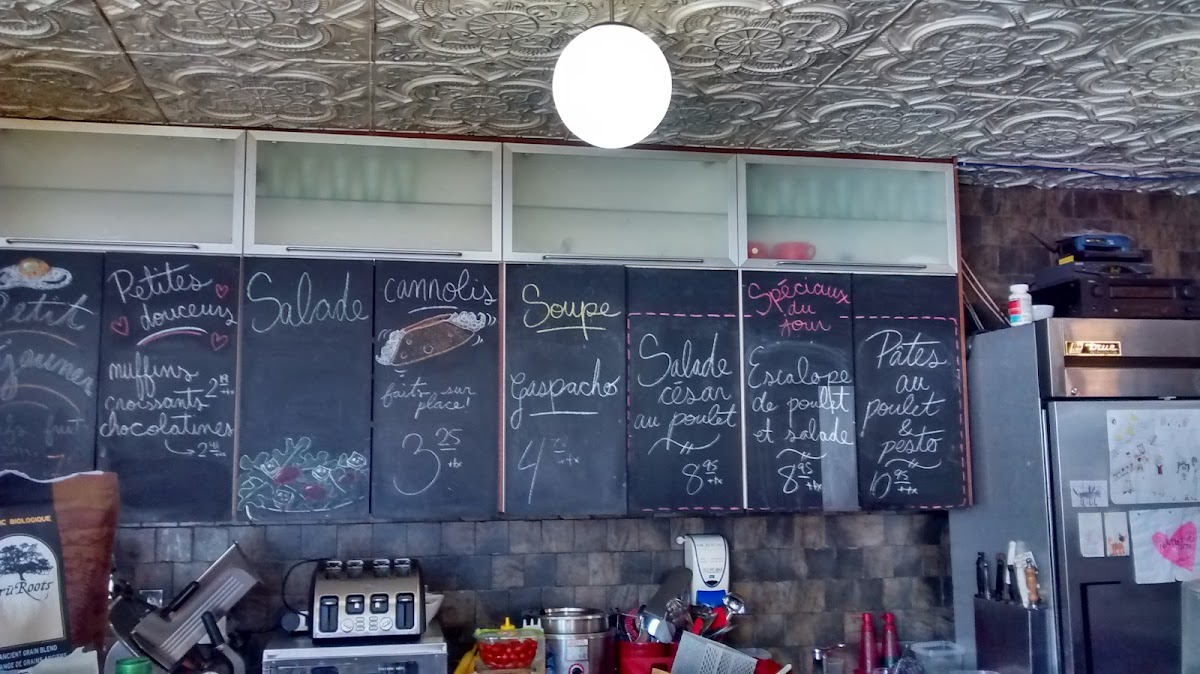 Petit
Déjeuner
Petites
douceurs
muffins
croissants
chocolatines
Salade
cannolis
faits sur
place!
3 25 +tx
Soupe
Gaspacho
Salade
césar
au poulet
8 95 +tx
Spéciaux
du
Jour
Escalope
de poulet
et salade
8 95 +tx
Pâtes
au
poulet
&
pesto
10 95 +tx
true
C BIOLOGIQUE
Roots
ANCIENT GRAIN BLEND